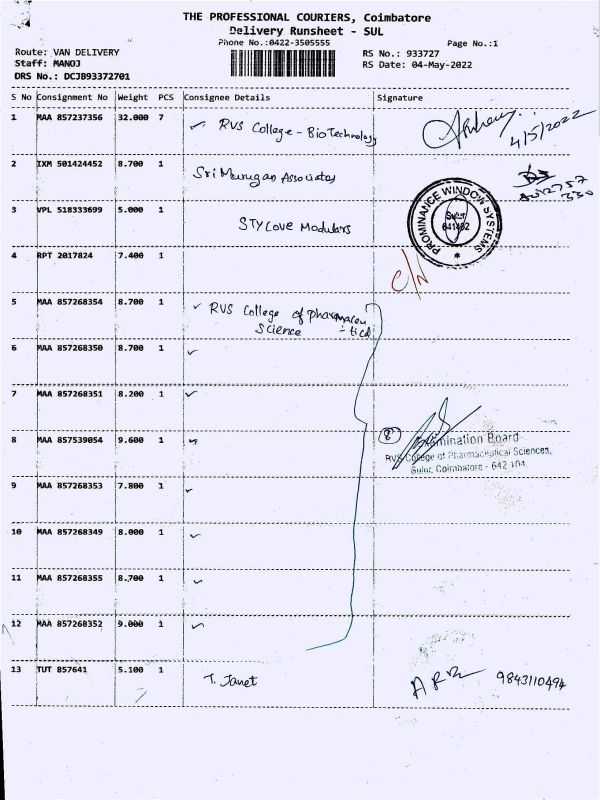 THE PROFESSIONAL COURIERS, Coimbatore
Delivery Runsheet - SUL
Phone No.:0422-3505555
Page No.:1
Route: VAN DELIVERY
RS No.: 933727
Staff: MANOJ
RS Date: 04-May-2022
DRS No.: DCJB93372701
S No Consignment No Weight PCS Consignee Details Signature
1 MAA 857237356 32.000 7 RVS College - BioTechnology 4/5/2022
2 IXM 501424452 8.700 1 Sri Murugan Associates
3 VPL 518333699 5.000 1 STYLOVE Modulars
PROMINANCE WINDOW SYSTEMS
Sulur
641402
4 RPT 2017824 7.400 1 C/N
5 MAA 857268354 8.700 1 RVS College of pharmaceu
Science -tical
6 MAA 857268350 8.700 1
7 MAA 857268351 8.200 1
8 MAA 857539054 9.600 1 8
Examination Board
RVS College of Pharmaceutical Sciences,
Sulur, Coimbatore - 642 104
9 MAA 857268353 7.800 1
10 MAA 857268349 8.000 1
11 MAA 857268355 8.700 1
12 MAA 857268352 9.000 1
13 TUT 857641 5.100 1 T. Janet 9843110494